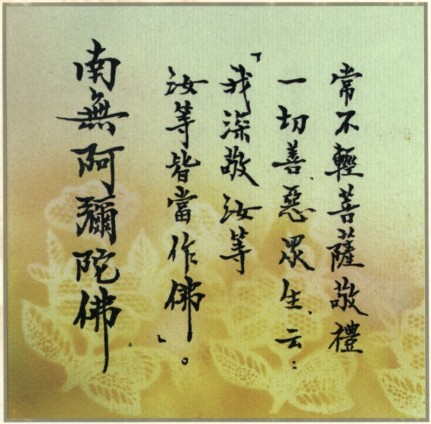 常不輕菩薩敬禮
一切善、惡眾生、云：
「我深敬汝等
汝等皆當作佛」。
南無阿彌陀佛